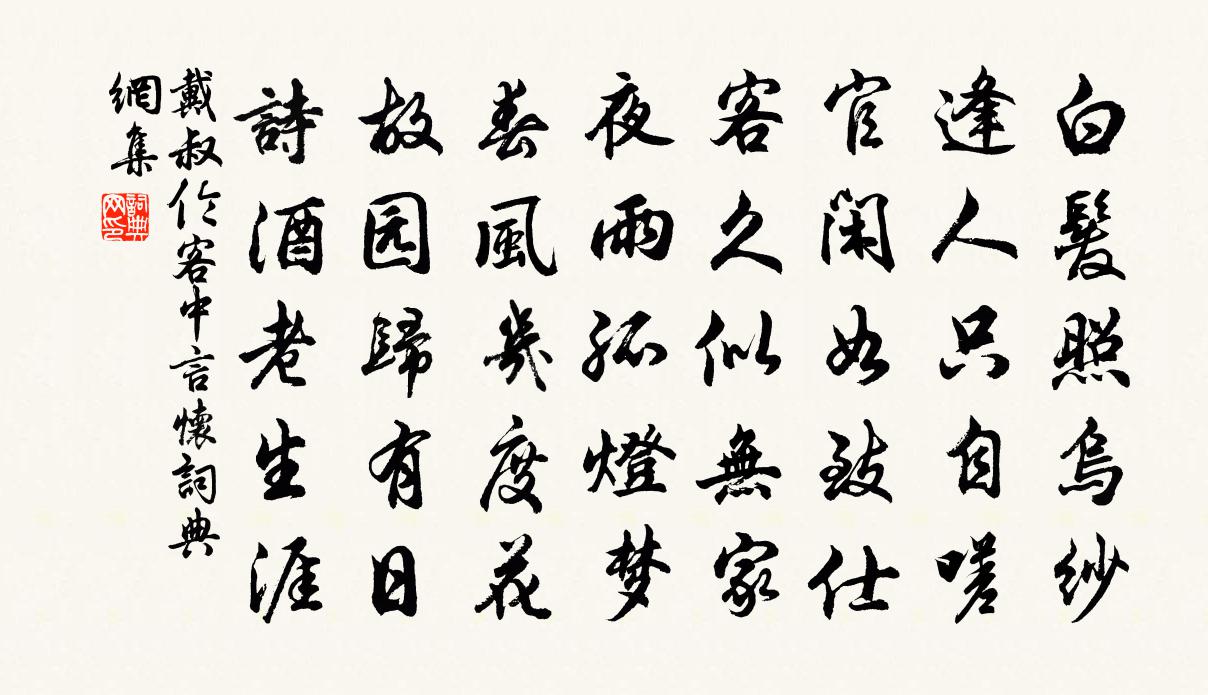 白髮照烏紗
逢人只自嗟
官閑如致仕
客久似無家
夜雨孤燈梦
春風幾度花
故园歸有日
詩酒老生涯
戴叔伦客中言懷詞典
網集
詞典
网印